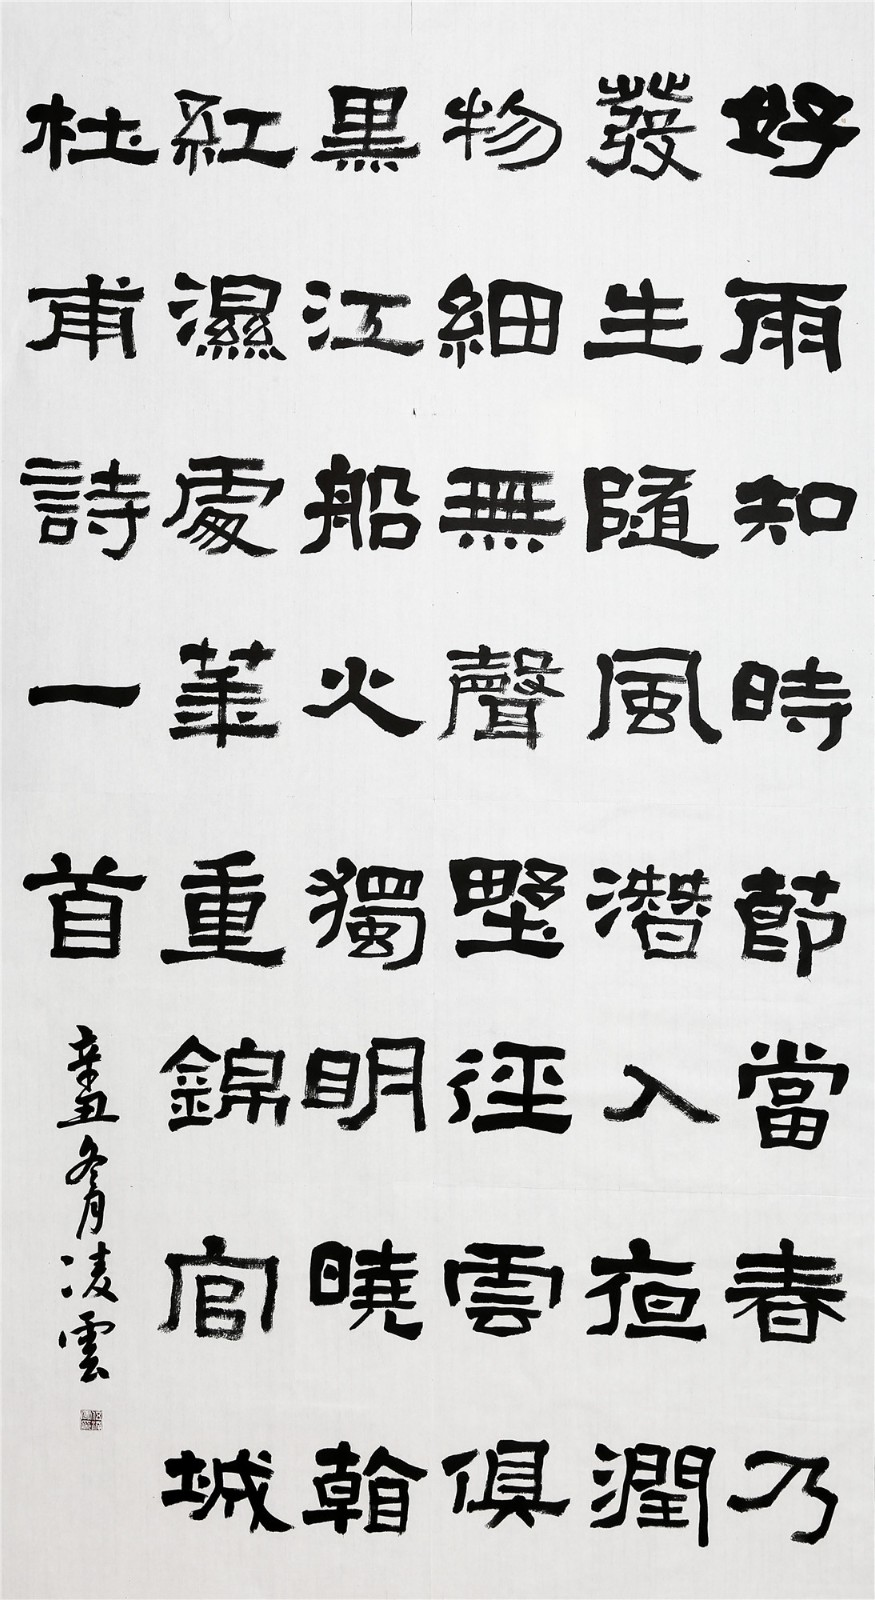 好雨知時節當春乃
發生隨風潛入夜潤
物細無聲野徑雲俱
黑江船火獨明曉看
紅濕處華重錦官城
杜甫詩一首
辛丑冬月凌雲